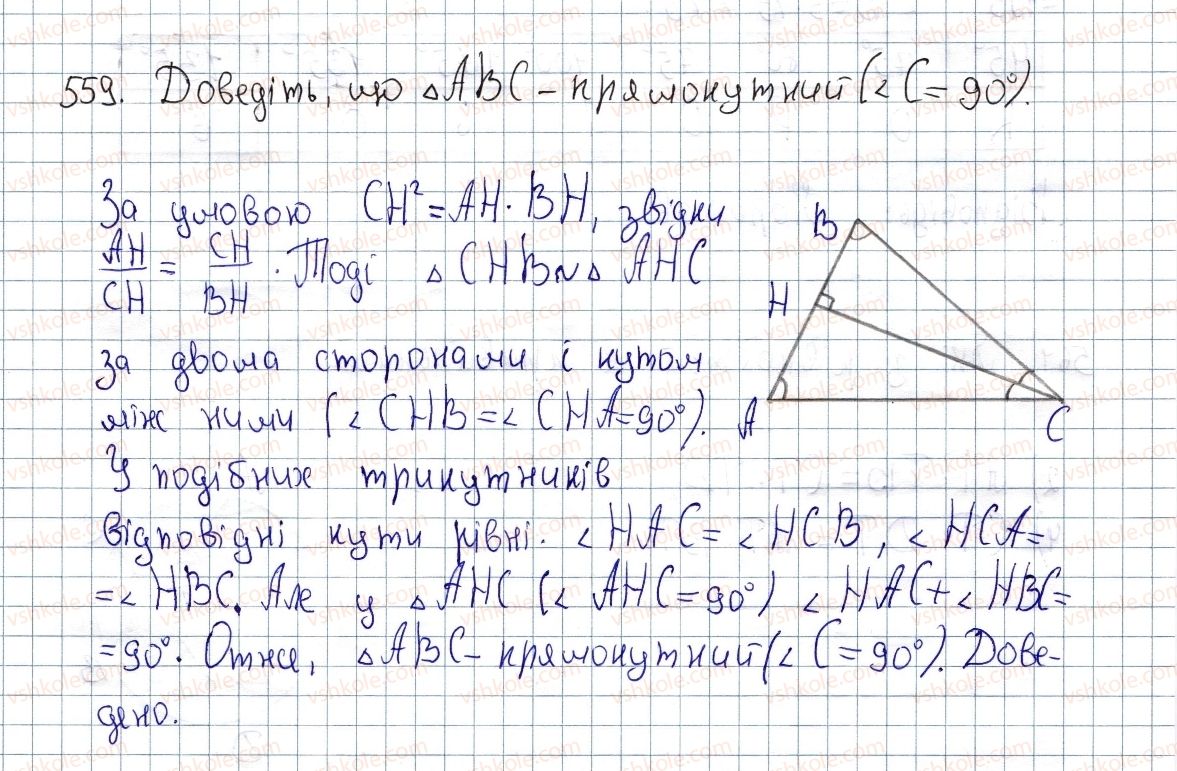 559. Доведіть, що △ABC – прямокутний (∠C = 90°).
За умовою CH² = AH · BH, звідки
AH/CH = CH/BH. Тоді △CHB ∾ △AHC
за двома сторонами і кутом
між ними (∠CHB = ∠CHA = 90°).
У подібних трикутників
відповідні кути рівні. ∠HAC = ∠HCB, ∠HCA =
= ∠HBC. Але у △AHC (∠AHC = 90°) ∠HAC + ∠HBC =
= 90°. Отже, △ABC – прямокутний (∠C = 90°). Дове-
дено.
B
H
A
C
vshkole.com